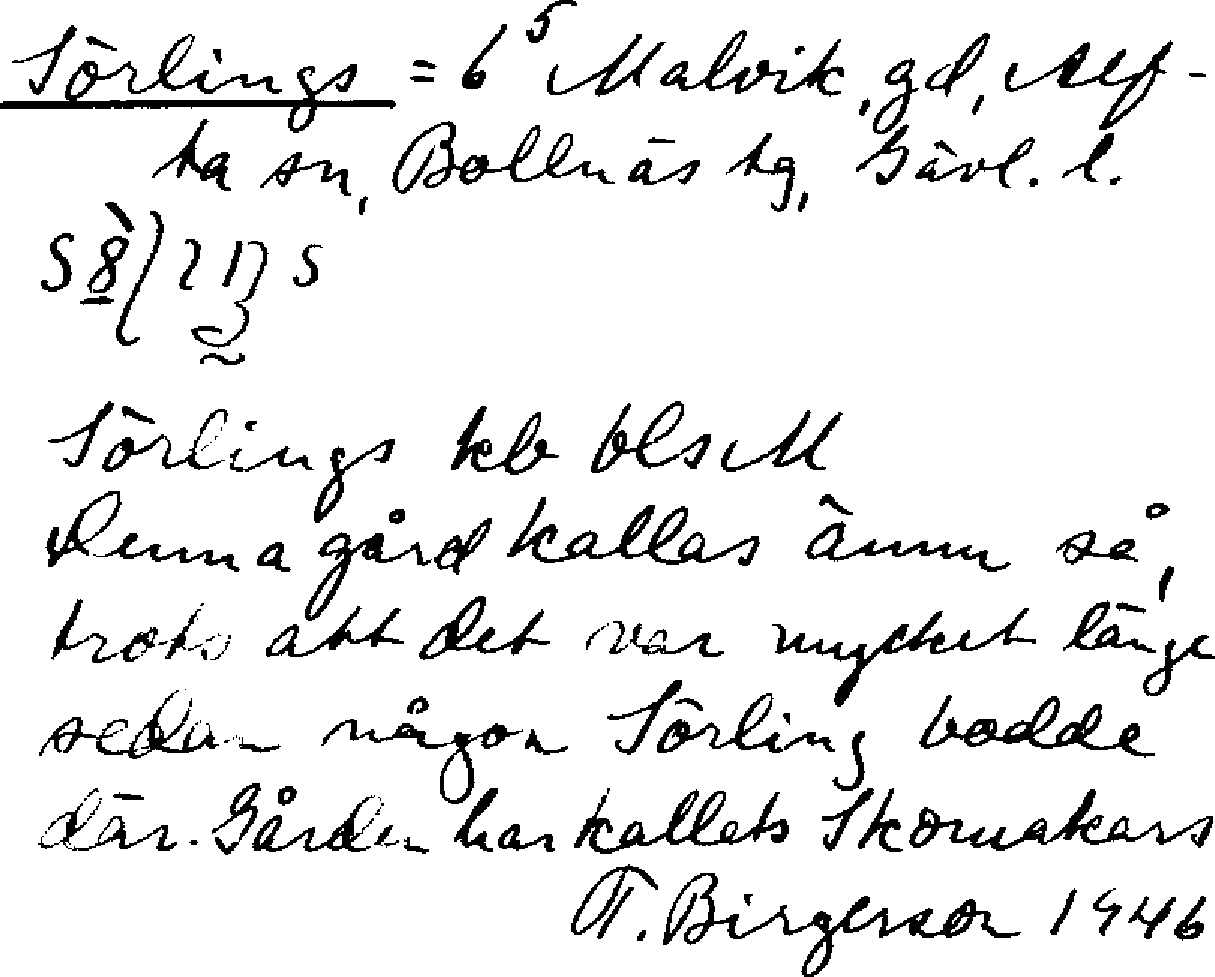 Sörlings = 6⁵ Malvik, gd, Alf-
ta sn, Bollnäs tg, Gävl. l.
Sörlings kb bls M
Denna gård kallas ännu så,
trots att det var mycket länge
sedan någon Sörling bodde
där. Gården har kallats Skomakars
T. Birgerson 1946